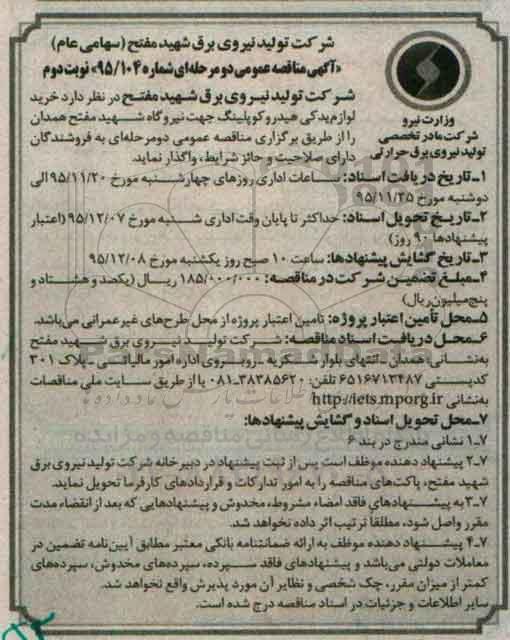 شرکت تولید نیروی برق شهید مفتح (سهامی عام)
«آگهی مناقصه عمومی دو مرحله‌ای شماره ۹۵/۱۰۴» نوبت دوم
وزارت نیرو
شرکت مادر تخصصی
تولید نیروی برق حرارتی
شرکت تولید نیروی برق شهید مفتح در نظر دارد خرید
لوازم یدکی هیدروکوپلینگ جهت نیروگاه شهید مفتح همدان
را از طریق برگزاری مناقصه عمومی دومرحله‌ای به فروشندگان
دارای صلاحیت و حائز شرایط، واگذار نماید.
۱ـ تاریخ دریافت اسناد: ساعات اداری روزهای چهارشنبه مورخ ۹۵/۱۱/۲۰ الی
دوشنبه مورخ ۹۵/۱۱/۲۵
۲ـ تاریخ تحویل اسناد: حداکثر تا پایان وقت اداری شنبه مورخ ۹۵/۱۲/۰۷ (اعتبار
پیشنهادها ۹۰ روز)
۳ـ تاریخ گشایش پیشنهادها: ساعت ۱۰ صبح روز یکشنبه مورخ ۹۵/۱۲/۰۸
۴ـ مبلغ تضمین شرکت در مناقصه: ۱۸۵/۰۰۰/۰۰۰ ریال (یکصد و هشتاد و
پنج میلیون ریال)
۵ـ محل تأمین اعتبار پروژه: تامین اعتبار پروژه از محل طرح‌های غیرعمرانی می‌باشد.
۶ـ محل دریافت اسناد مناقصه: شرکت تولید نیروی برق شهید مفتح
به‌نشانی: همدان ـ انتهای بلوار شکریه ـ روبـروی اداره امور مالیاتی ـ پلاک ۳۰۱
کدپستی ۶۵۱۶۷۱۳۴۸۷ تلفن: ۳۸۳۸۵۶۲۰ـ۰۸۱ یا از طریق سایت ملی مناقصات
به‌نشانی http://iets.mporg.ir
۷ـ محل تحویل اسناد و گشایش پیشنهادها:
۷ـ۱ نشانی مندرج در بند ۶
۷ـ۲ پیشنهاد دهنده موظف است پس از ثبت پیشنهاد در دبیرخانه شرکت تولید نیروی برق
شهید مفتح، پاکت‌های مناقصه را به امور تدارکات و قراردادهای کارفرما تحویل نماید.
۷ـ۳ به پیشنهادهای فاقد امضاء مشروط، مخدوش و پیشنهادهایی که بعد از انقضاء مدت
مقرر واصل شود، مطلقا ترتیب اثر داده نخواهد شد.
۷ـ۴ پیشنهاد دهنده موظف به ارائه ضمانتنامه بانکی معتبر مطابق آیین‌نامه تضمین در
معاملات دولتی می‌باشد و پیشنهادهای فاقد سپرده، سپرده‌های مخدوش، سپرده‌های
کمتر از میزان مقرر، چک شخصی و نظایر آن مورد پذیرش واقع نخواهد شد.
سایر اطلاعات و جزئیات در اسناد مناقصه درج شده است.